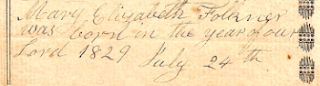 Mary Elizabeth Folkner
was born in the year of our
Lord 1829 July 24th